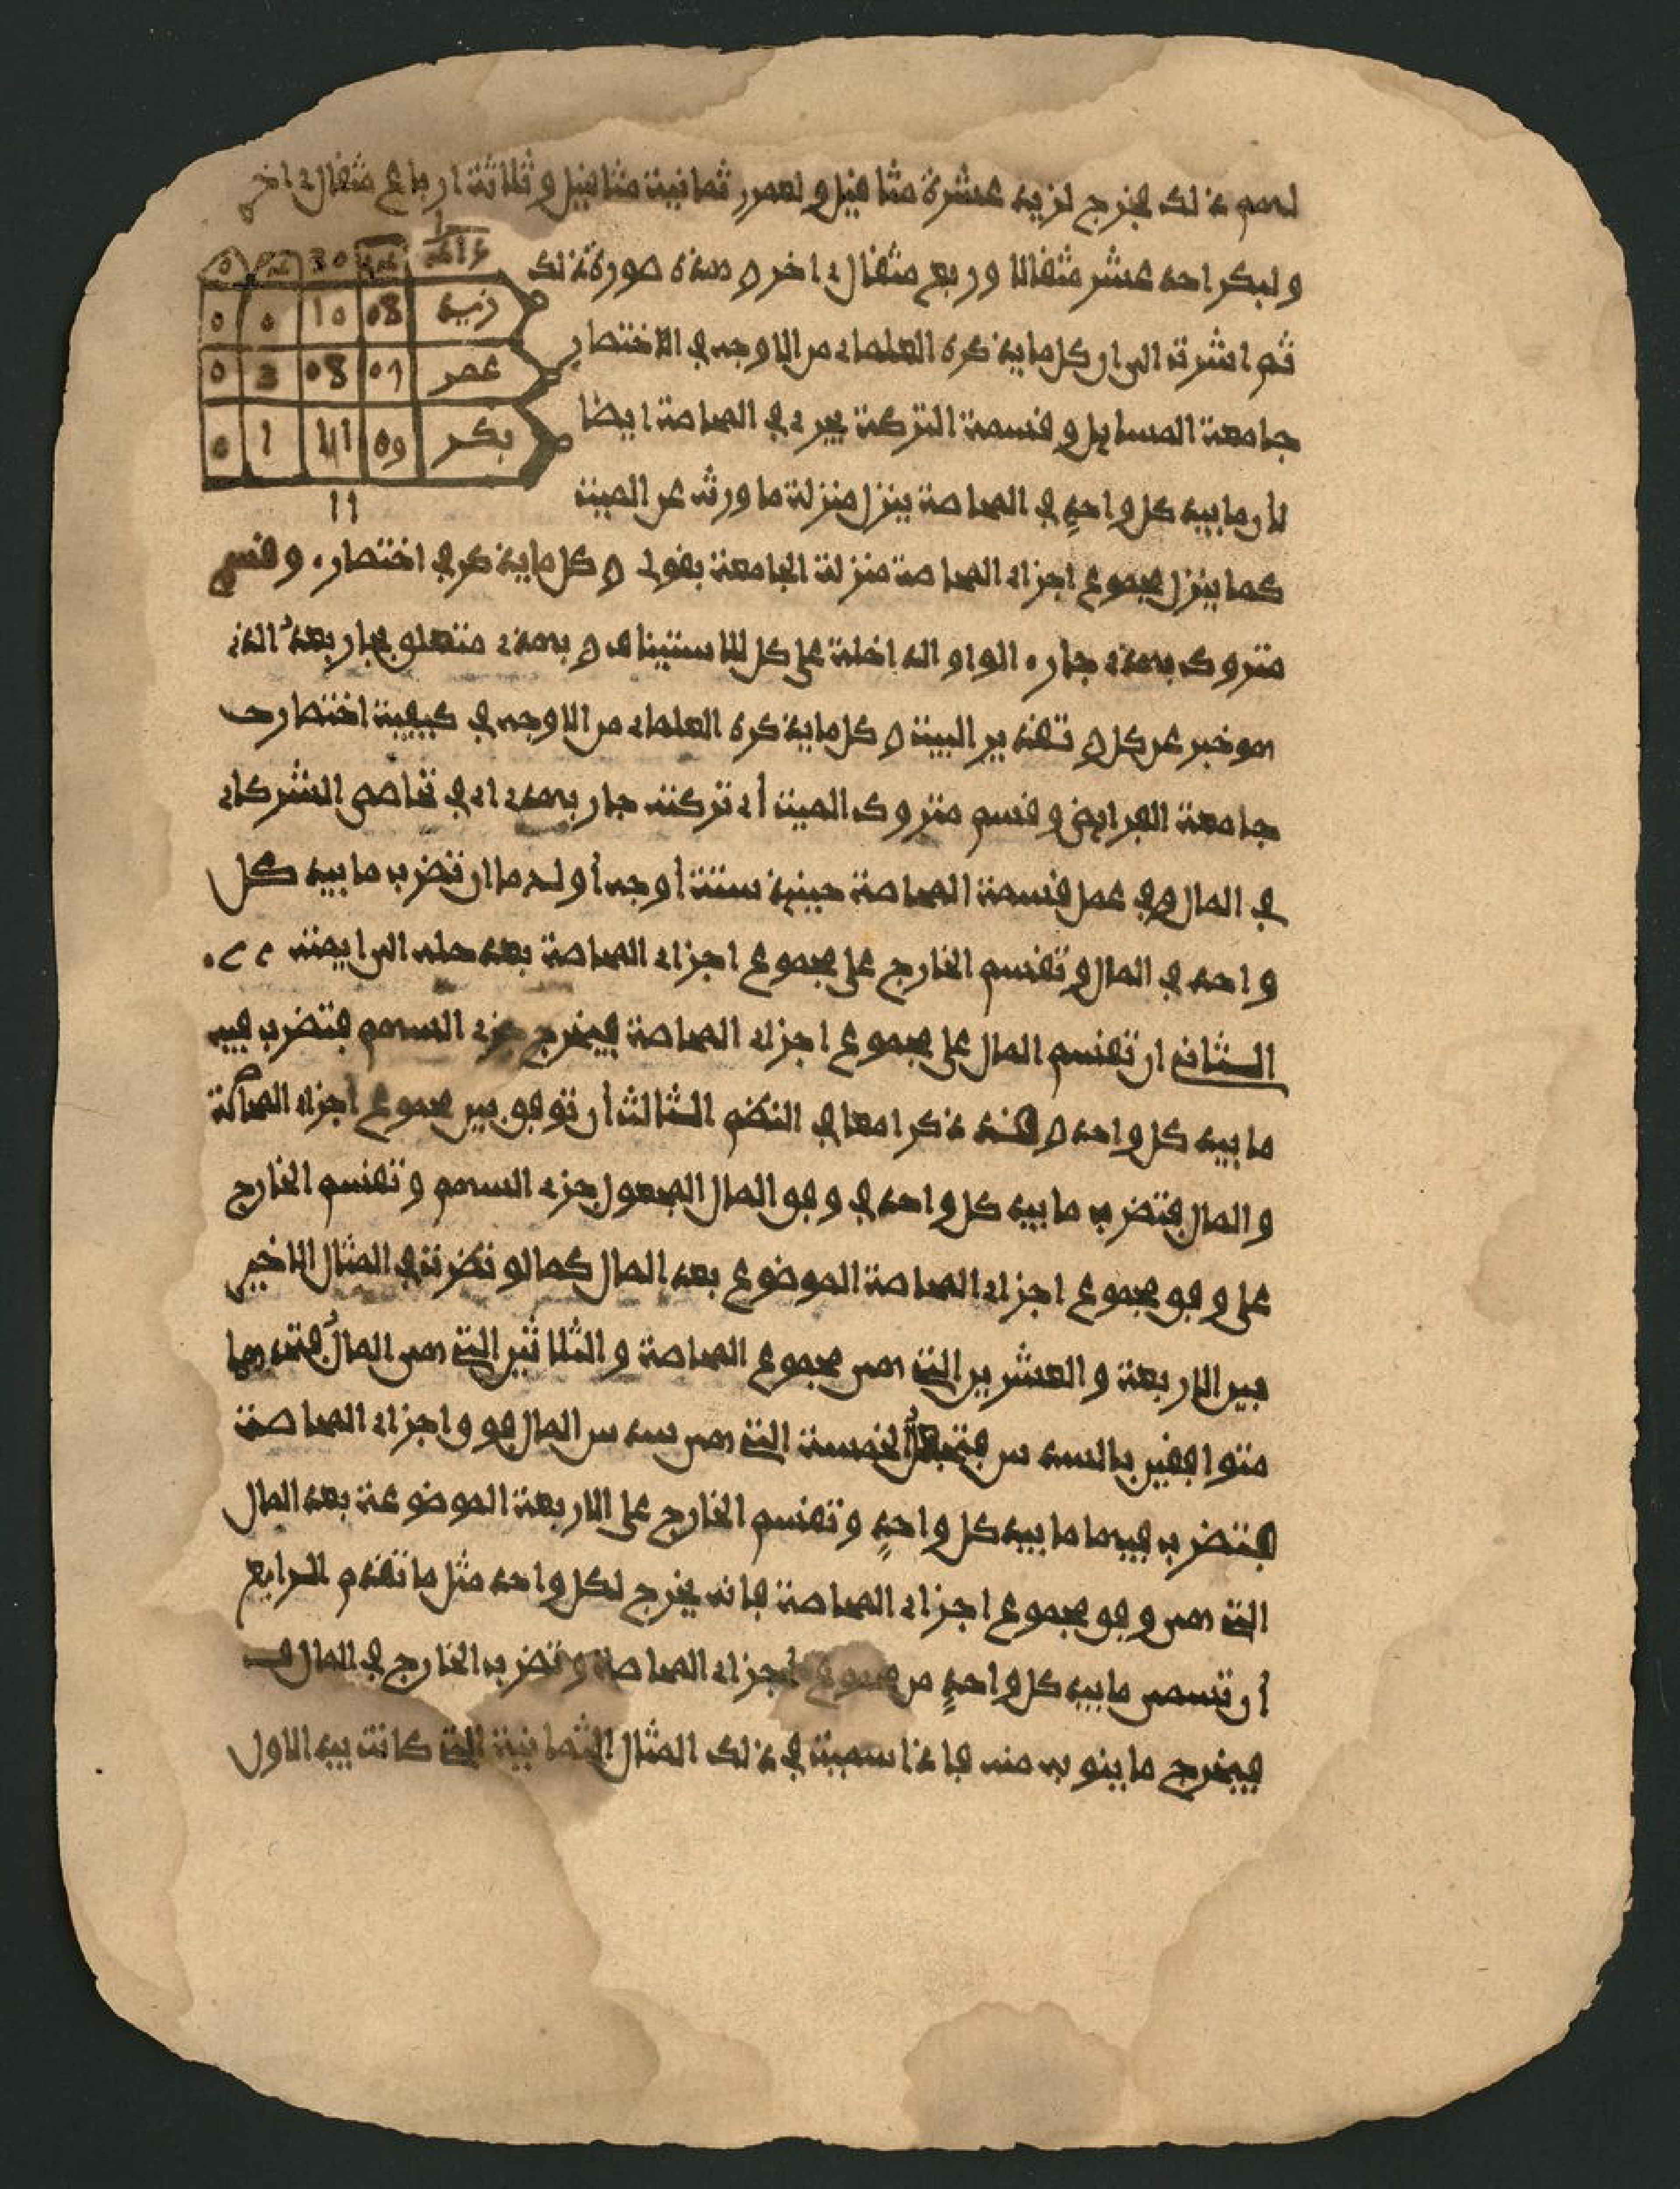 لهم ذلك يخرج لزيد عشرة مثاقيل ولعمرو ثمانية مثاقيل وثلاثة ارباع مثقال اخر
ولبكر احد عشر مثقالا وربع مثقال اخر وهذه صورة ذلك
زيد 08 10 0 0
ثم اشرت الى ان كل ما يذكره العلماء من الاوجه في الاختصار
عمر 07 08 3 0
جامعة المسايل وقسمة التركة يجرى في المحاصة ايضا
بكر 09 11 1 0
لان ما بيد كل واحد في المحاصة ينزل منزلة ما ورثه عن الميت
كما ينزل مجموع اجزاء المحاصة منزلة الجامعة بقولى وكل ما يذكر في اختصار وقسم
متروك بهذا جار الواو الداخلة على كل للاستيناف وبهذا متعلق بجار بعد الذى
هو خبر عن كل وتقدير البيت وكل ما يذكره العلماء من الاوجه في كيفية اختصار
جامعة الفرايض وقسم متروك الميت أى تركته جار بهذا اى في تحاصى الشركاء
في المال وفي عمل قسمة المحاصة حينيذ ستة أوجه أولها ان تضرب ما بيد كل
واحد في المال وتقسم الخارج على مجموع اجزاء المحاصة بعد حله الى ايمته
الثانى ان تقسم المال على مجموع اجزاء المحاصة فيخرج جزء السهم فتضرب فيه
ما بيد كل واحد وقد ذكرا معا في النظم الثالث أن توفق بين مجموع اجزاء المحاصة
والمال فتضرب ما بيد كل واحد في وفق المال المجعول جزء السهم وتقسم الخارج
على وفق مجموع اجزاء المحاصة الموضوع بعد المال كما لو نظرت في المثال الاخير
بين الاربعة والعشرين التى هى مجموع المحاصة والثلاثين التى هى المال فتجدهما
متوافقين بالسدس فتجعل الخمسة التى هى سدس المال فوق اجزاء المحاصة
فتضرب فيهما ما بيد كل واحد وتقسم الخارج على الاربعة الموضوعة بعد المال
التى هى وفق مجموع اجزاء المحاصة فانه يخرج لكل واحد مثل ما تقدم الرابع
أن تسمى ما بيد كل واحد من مجموع اجزاء المحاصة وتضرب الخارج في المال
فيخرج ما ينوبه منه فاذا سميت في ذلك المثال الثمانية التى كانت بيد الاول